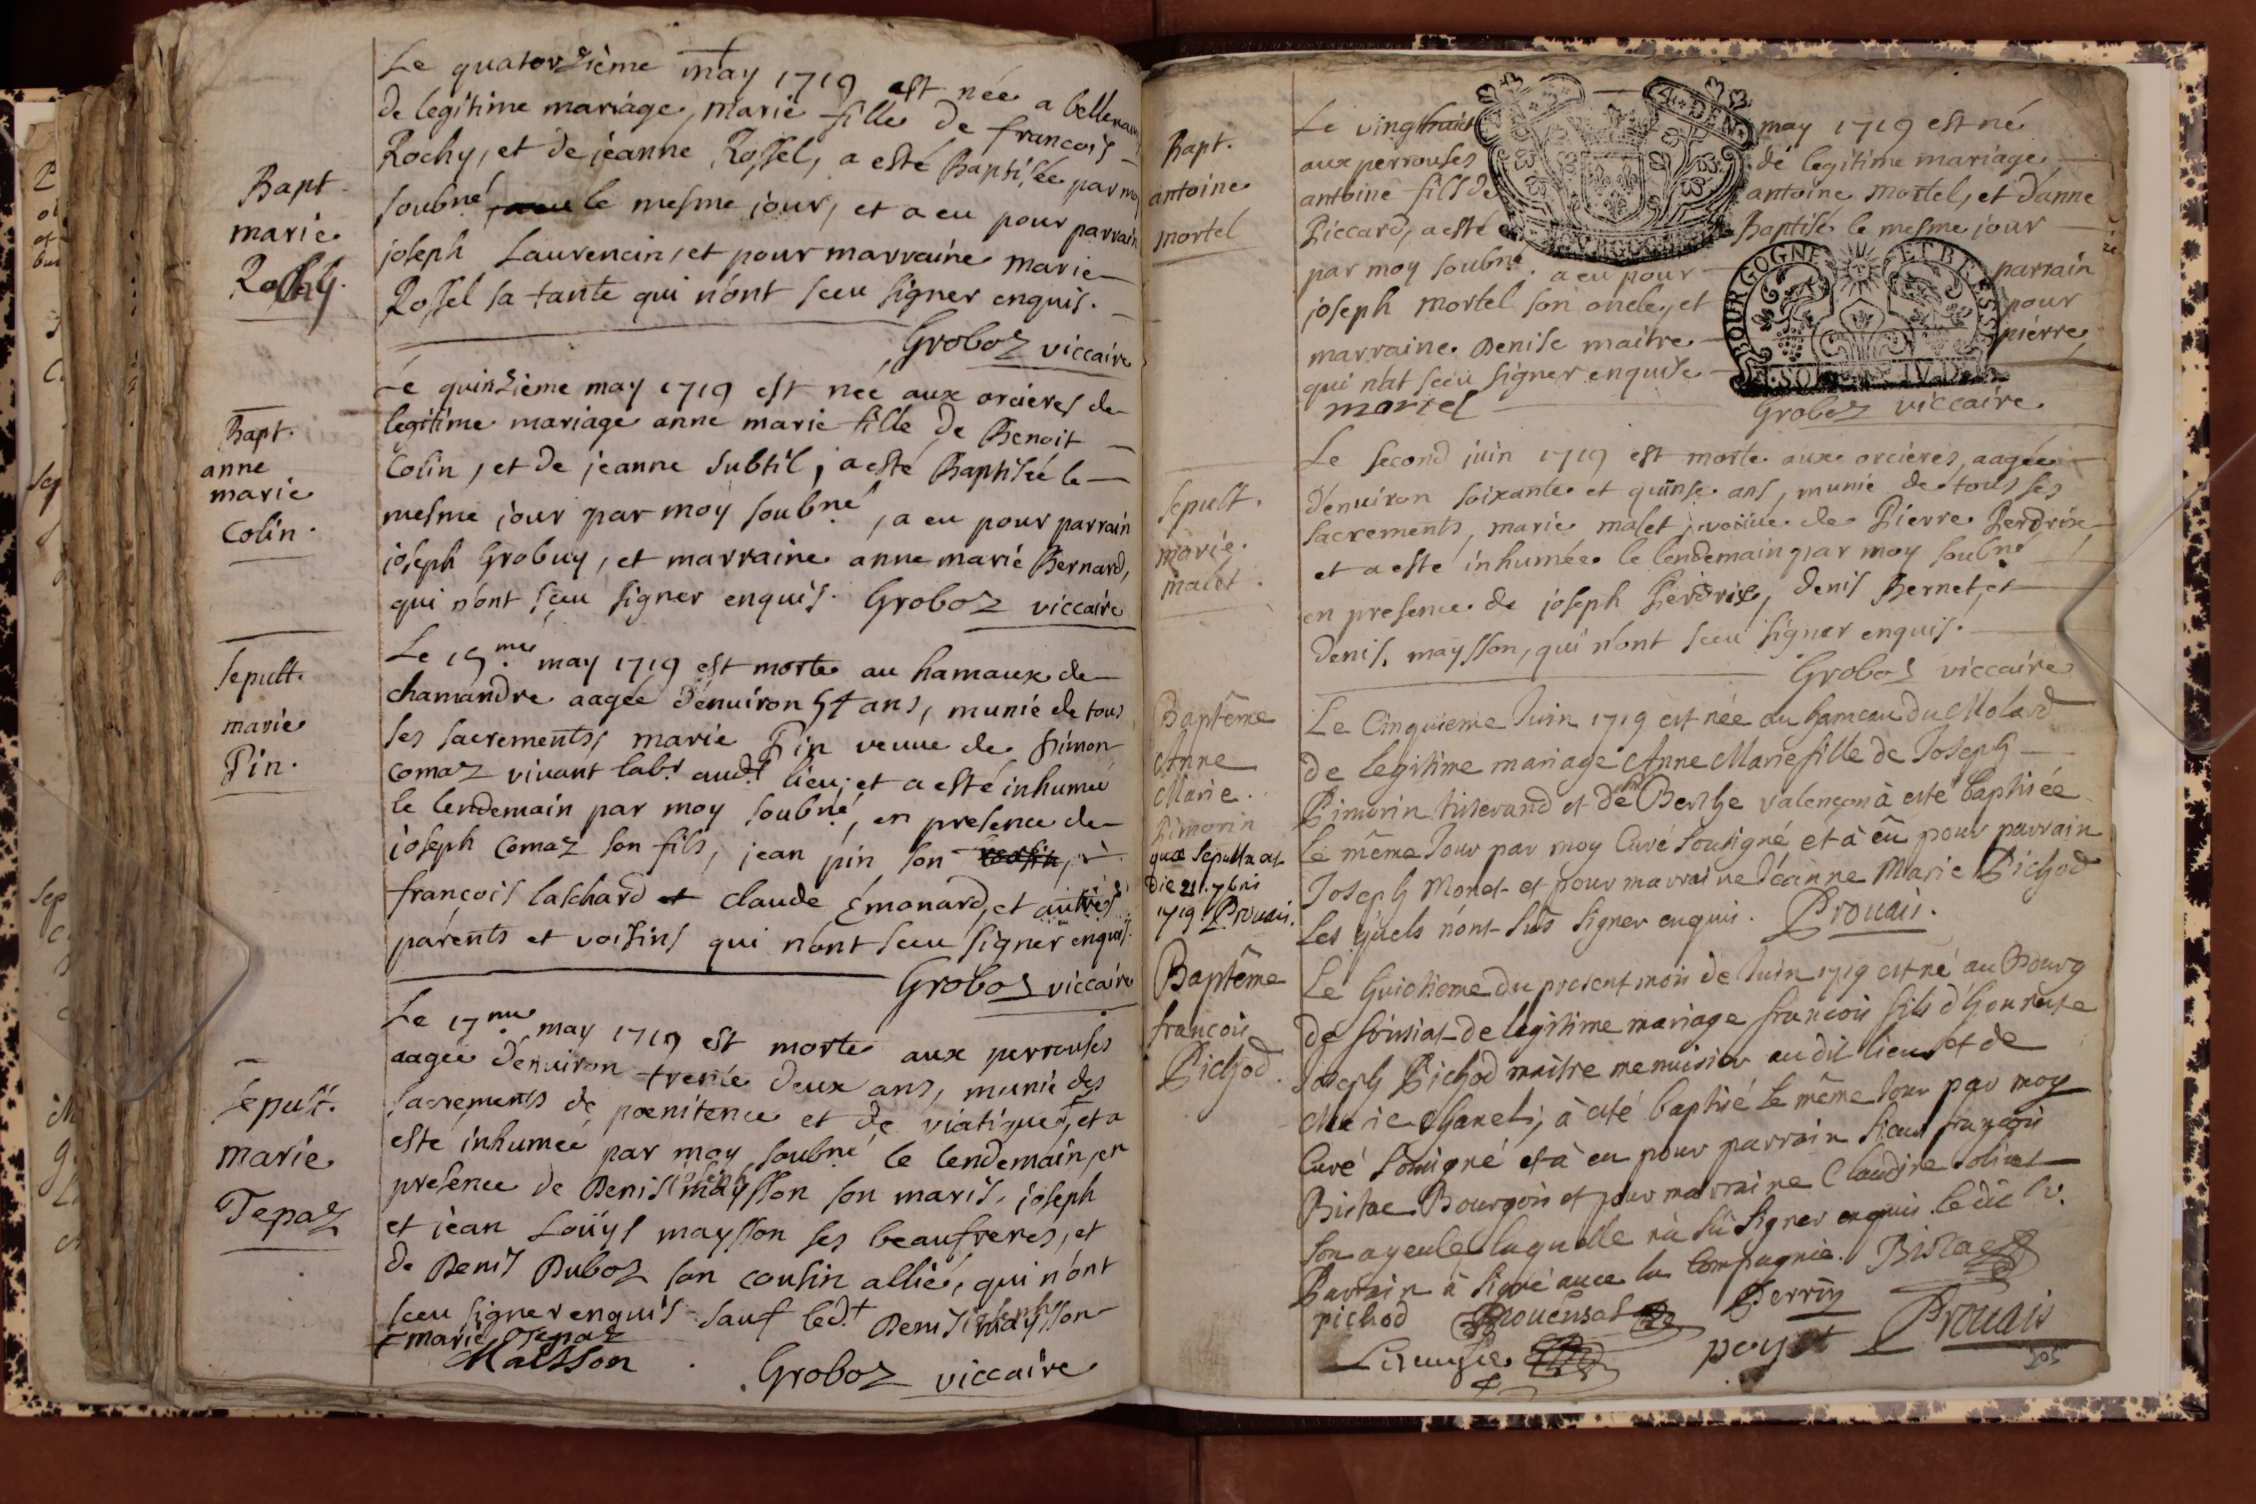 Bapt.
marie
Rochy.
Le quatorzième may 1719 est née a bellenaux
de legitime mariage, marie fille de francois
Rochy, et de jeanne Rossel, a esté Baptisée par moy
soubné le mesme jour, et a eu pour parrain
joseph Laurencin, et pour marraine marie
Rossel sa tante qui n'ont sceu signer enquis.
Groboz viccaire
Bapt.
anne
marie
Colin.
Le quinzième may 1719 est née aux orcieres de
legitime mariage anne marie fille de Benoit
Colin, et de jeanne Subtil, a esté Baptisée le
mesme jour par moy soubné, a eu pour parrain
joseph Grobuy, et marraine anne marie Bernard,
qui n'ont sceu signer enquis. Groboz viccaire
sepult.
marie
Pin.
Le 15me may 1719 est morte au hamaux de
chamandre aagée d'enuiron 54 ans, munie de tous
ses sacrements, marie Pin veuue de Simon
comaz viuant labr. audt. lieu, et a esté inhumée
le lendemain par moy soubné, en presence de
joseph comaz son fils, jean pin son
francois laschard et claude Emonard, et autres
parents et voisins qui n'ont sceu signer enquis.
Groboz viccaire
sepult.
marie
Tepaz
Le 17me may 1719 est morte aux perrouses
aagée d'enuiron trente deux ans, munie des
sacrements de poenitence et de viatique, et a
esté inhumée par moy soubné le lendemain, en
presence de Denis joseph maysson son maris, joseph
et jean Loüys maysson ses beaufreres, et
de Denis Duboz son cousin allié, qui n'ont
sceu signer enquis sauf led.t Denis joseph maysson
+ marie Tepaz
Maisson Groboz viccaire
Bapt.
antoine
mortel
Le vingthuit may 1719 est né
aux perrouses de legitime mariage
antoine fils de antoine mortel, et d'anne
Piccard, a esté Baptisé le mesme jour
par moy soubné. a eu pour parrain
joseph mortel son oncle, et pour
marraine Denise maitre pierre
qui n'at sceu signer enquise
mortel Groboz viccaire
A. DEN.
BOURGOGNE
BOURGOGNE ET BRESSE
sepult.
marie
malet.
Le second juin 1719 est morte aux orcieres, aagée
d'enuiron soixante et quinse ans, munie de tous ses
sacrements, marie malet, veuue de Pierre Perdrix,
et a esté inhumée le lendemain par moy soubné
en presence de joseph Perdrix, denis Bernet, et
denis maysson, qui n'ont sceu signer enquis.
Groboz viccaire
Baptême
Anne
Marie
Pimorin
quæ sepulta est
die 21. 7bris
1719. Prouais.
Le Cinquieme Juin 1719 est née au hameau du Molard
de legitime mariage Anne Marie fille de Joseph
Pimorin tisserand et de Berthe valençon à esté baptisée
le même Jour par moy Curé Sousigné et à eû pour parrain
Joseph Monet et pour marraine Jéanne Marie Pichod
Les quels n'ont sus signer enquis. Prouais.
Baptême
francois
Pichod.
Le huictieme du present mois de Juin 1719 est né au Bourg
de foissiat de legitime mariage francois fils d'honneste
Joseph Pichod maitre menuisier audit lieu et de
Marie Chanel, à esté baptisé le même Jour par moy
Curé sousigné et à eu pour parrain sieur françois
Bistac Bourgois et pour marraine Claudine
son ayeule, laquelle n'à sû signer enquis. le dit sr.
Parrain à signé auec la Compagnie. Bistac
pichod Prouensal Perrin
payet Prouais
205